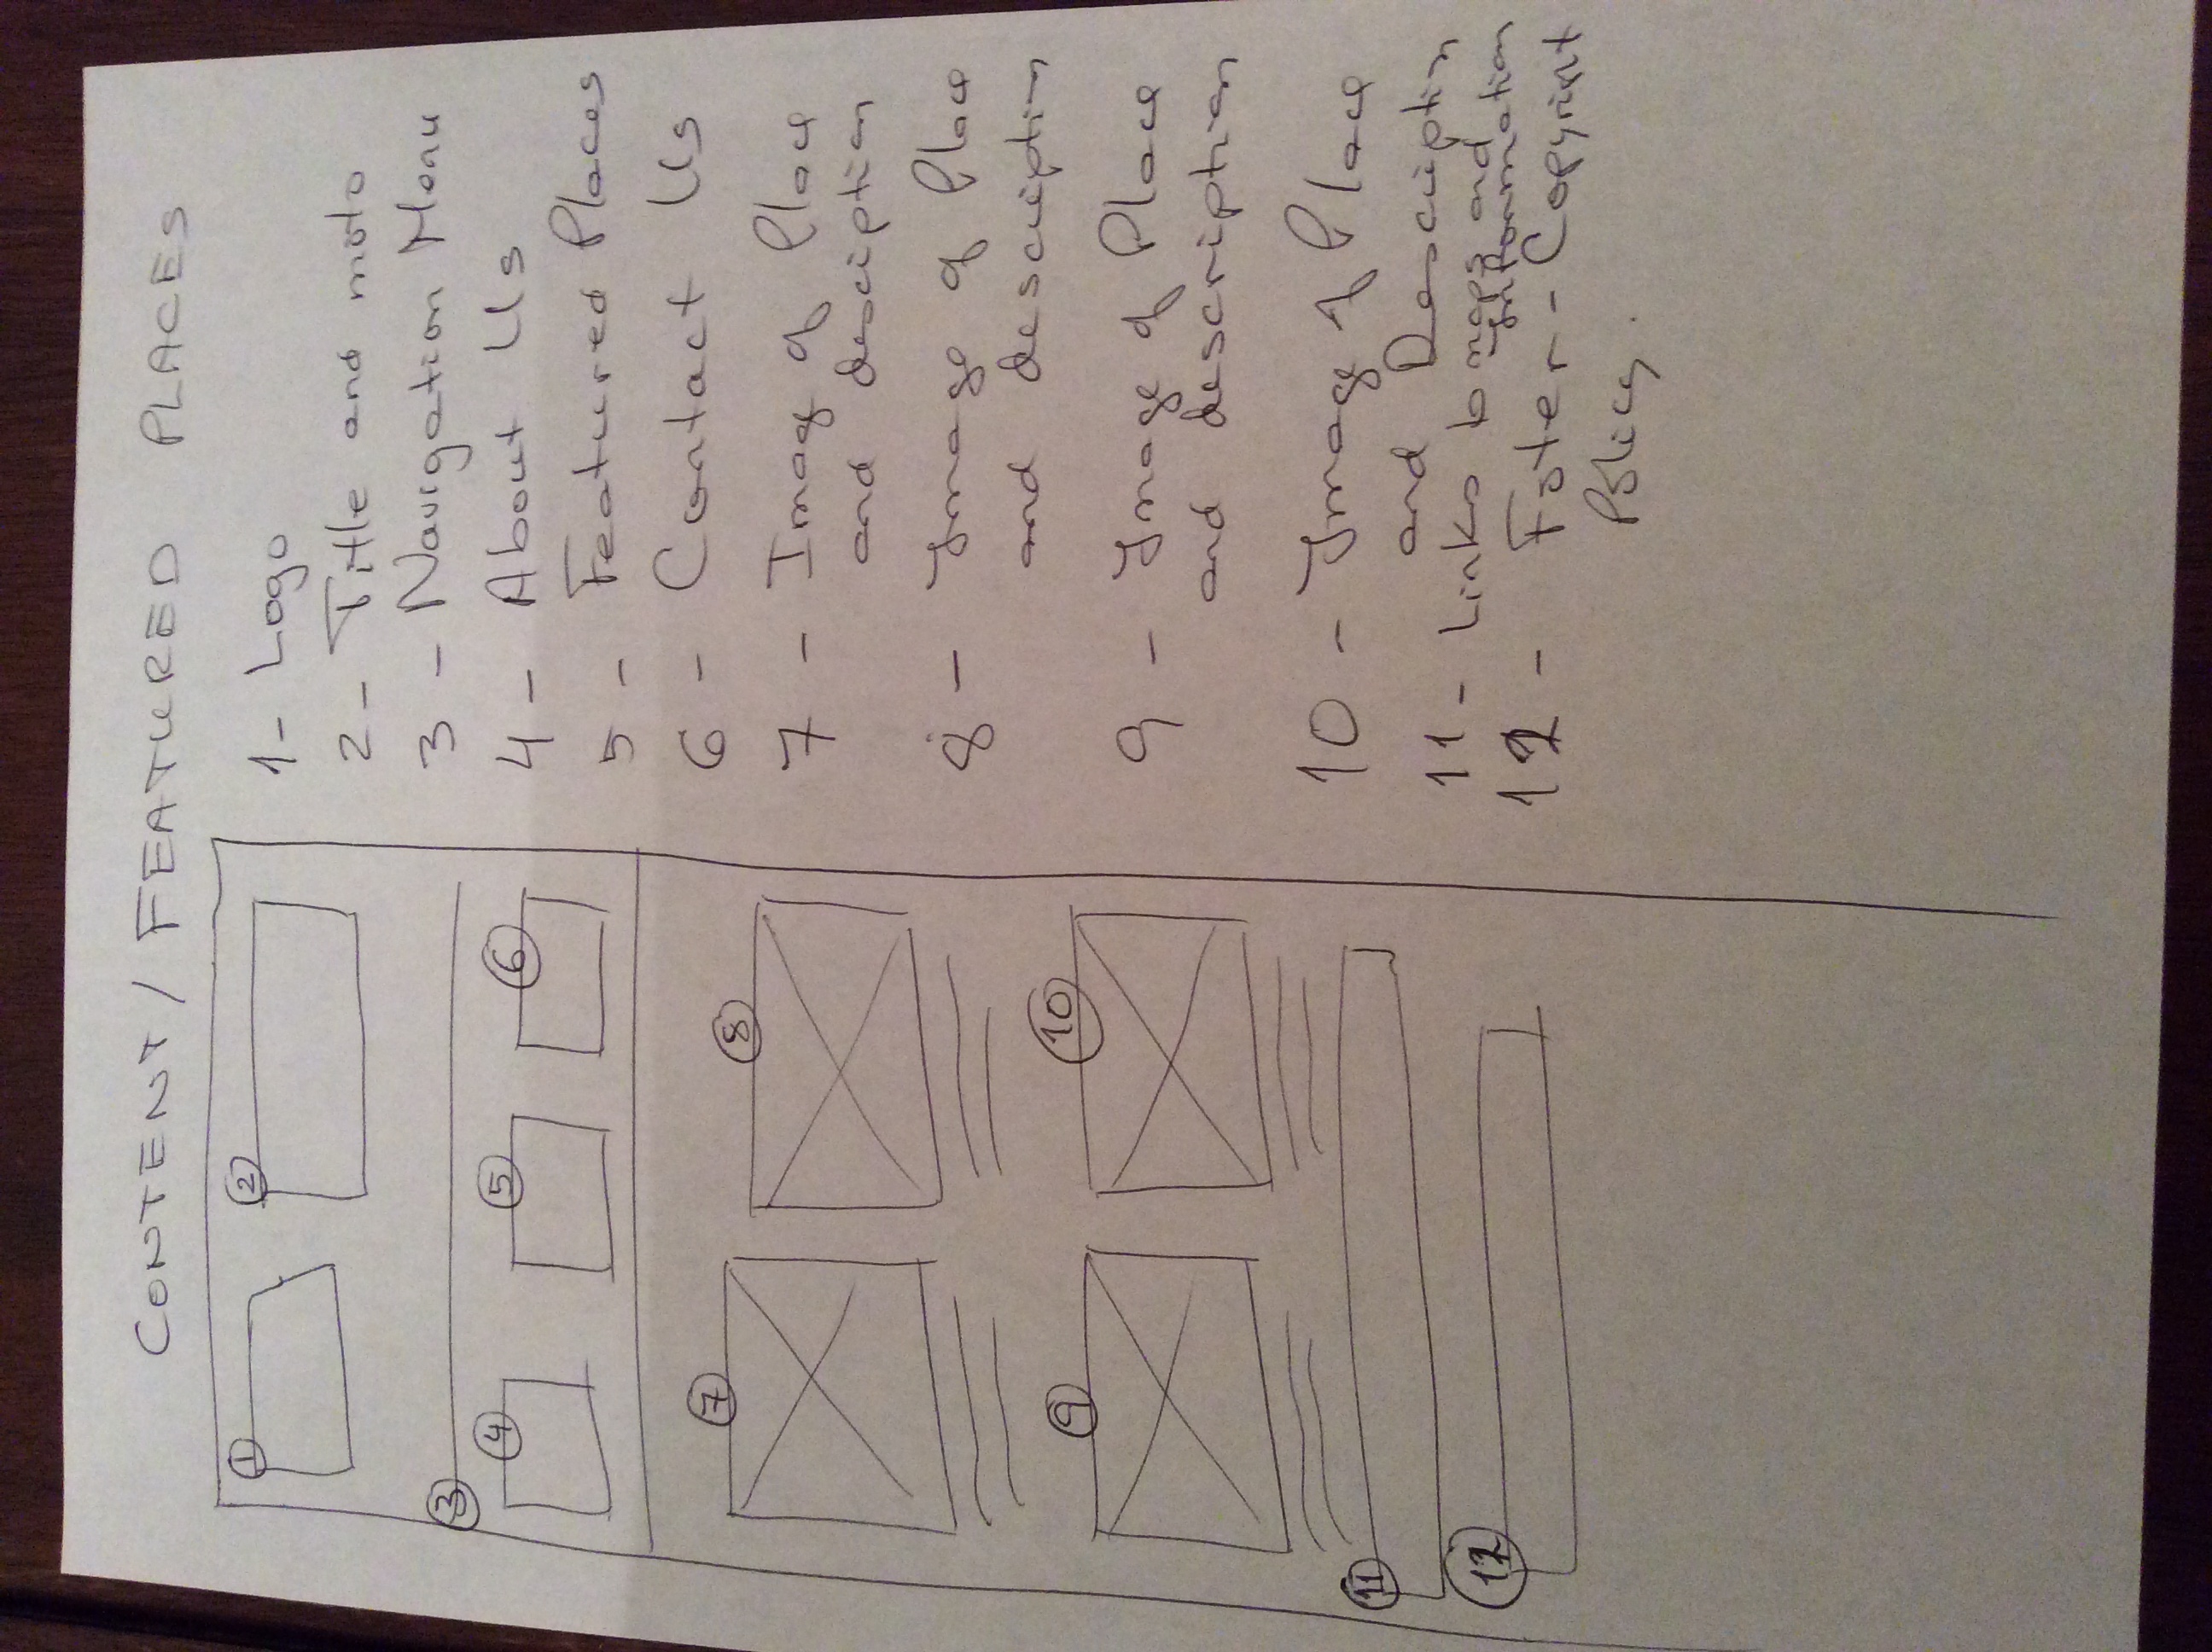 CONTENT / FEATURED PLACES
1
2
3
4
5
6
7
8
9
10
11
12
1 - Logo
2 - Title and moto
3 - Navigation Menu
4 - About Us
5 - Featured Places
6 - Contact Us
7 - Image of Place
and desciption
8 - Image of Place
and description
9 - Image of Place
and description
10 - Image of Place
and Description
11 - Links to maps and
Information
12 - Foter - Copyright
Policy.